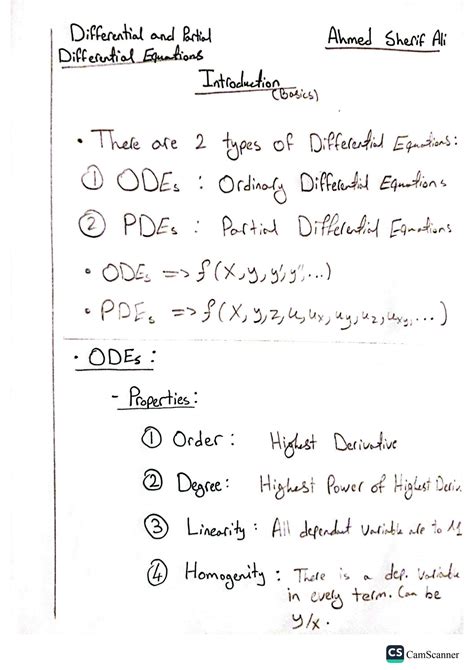 Differential and Partial
Differential Equations
Ahmed Sherif Ali
Introduction
(Basics)
• There are 2 types of Differential Equations:
① ODEs : Ordinary Differential Equations
② PDEs : Partial Differential Equations
• ODEs => f(x,y,y',y'',...)
• PDEs => f(x,y,z,u,ux,uy,uz,uxy,...)
• ODEs :
- Properties:
① Order : Highest Derivative
② Degree : Highest Power of Highest Deriv.
③ Linearity : All dependent variable are to
④ Homogenity : There is a dep. variable
in every term. Can be
y/x.
CS CamScanner